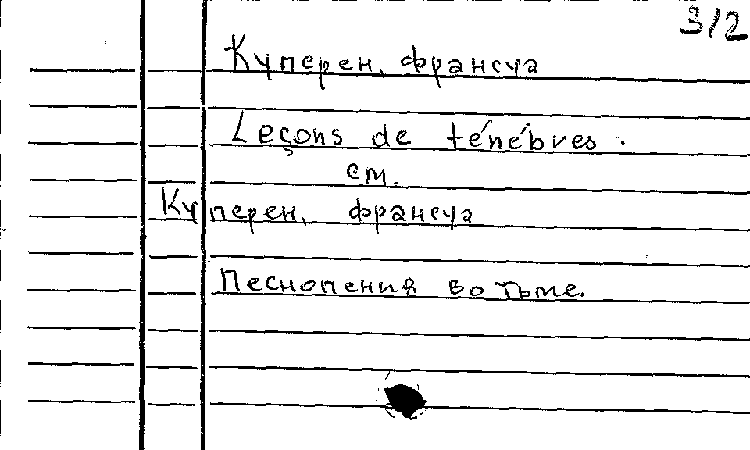 3/2
Куперен, Франсуа
Leçons de ténébres.
см.
Куперен, Франсуа
Песнопения во тьме.